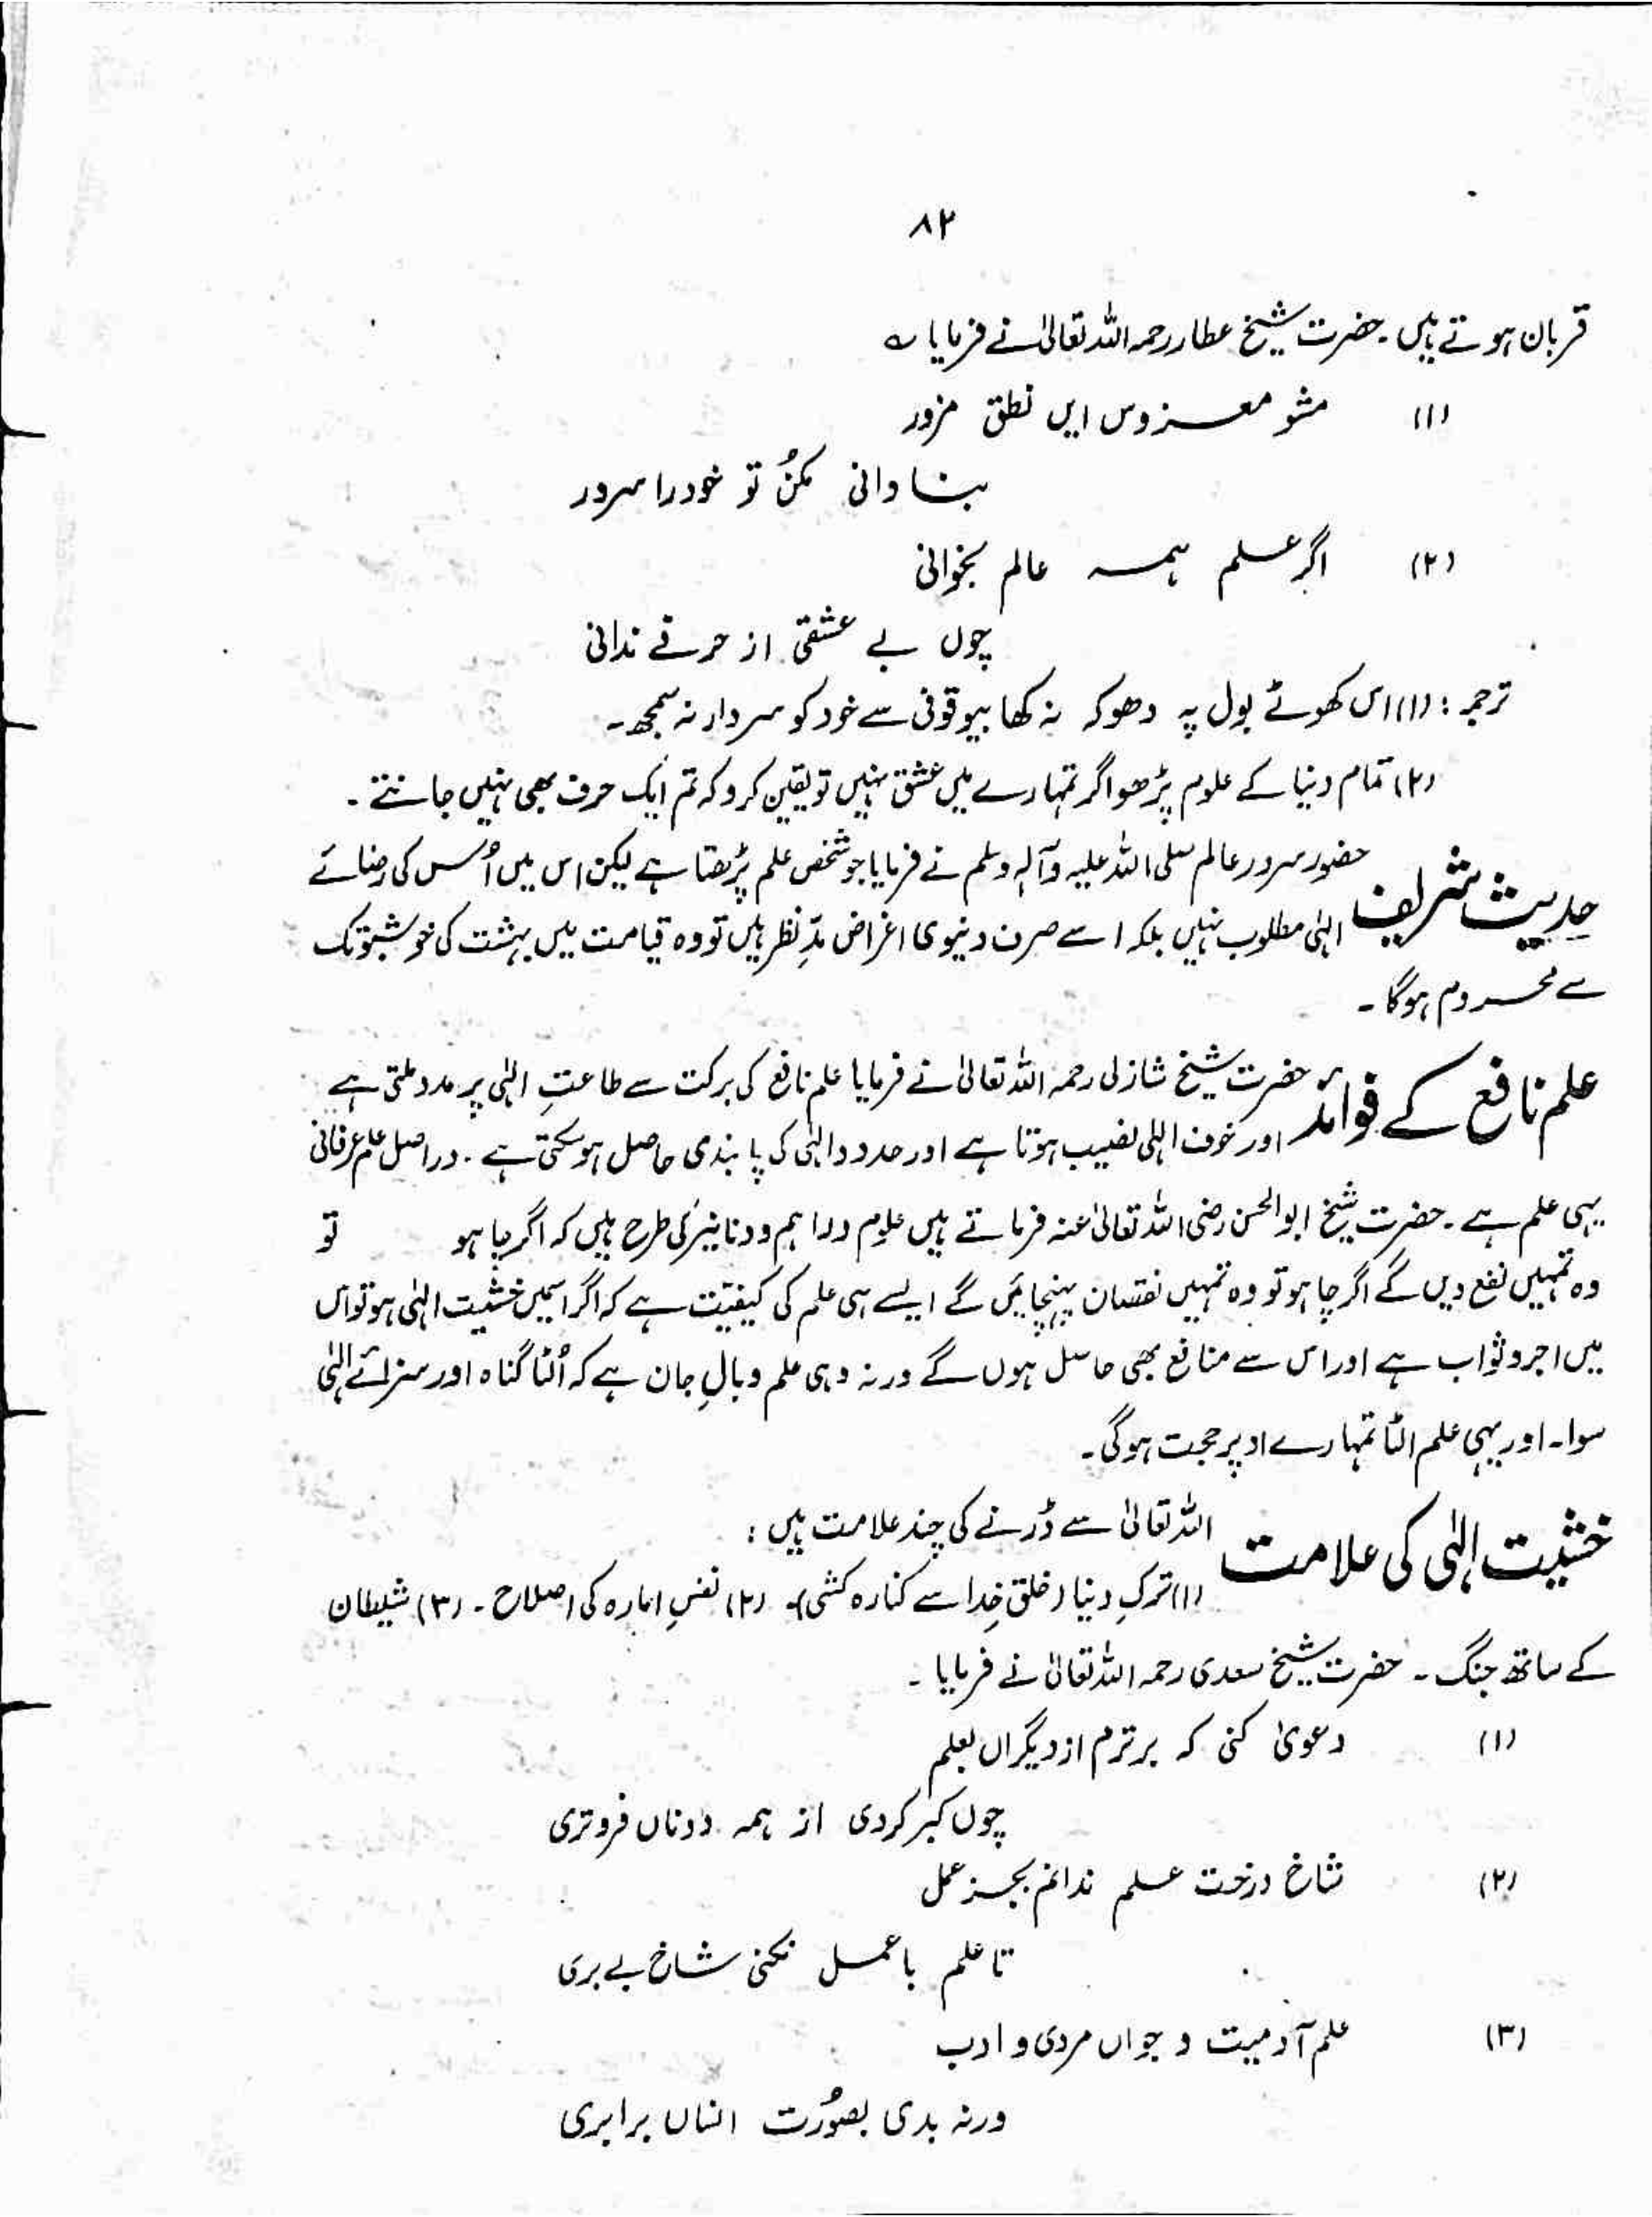 ۸۲
قربان ہوتے ہیں۔ حضرت شیخ عطار رحمہ اللہ تعالیٰ نے فرمایا ؎
(۱) مشو مغروس ایں نطق مزور
بنا دانی مکنُ تو خود را سرور
(۲) اگر علم ہمہ عالم بخوانی
چوں بے عشقی از حرفے ندانی
ترجمہ: (۱) اس کھوٹے بول پہ دھوکہ نہ کھا بیوقوفی سے خود کو سردار نہ سمجھ۔
(۲) تمام دنیا کے علوم پڑھو اگر تمہارے میں عشق نہیں تو یقین کرو کہ تم ایک حرف بھی نہیں جانتے۔
حدیث شریف حضور سرور عالم صلی اللہ علیہ وآلہٖ وسلم نے فرمایا جو شخص علم پڑھتا ہے لیکن اس میں اُس کی رضائے
الہٰی مطلوب نہیں بلکہ اسے صرف دنیوی اغراض مدِّ نظر ہیں تو وہ قیامت میں بہشت کی خوشبو تک
سے محروم ہوگا۔
علم نافع کے فوائد حضرت شیخ شاذلی رحمہ اللہ تعالیٰ نے فرمایا علم نافع کی برکت سے طاعتِ الہٰی پر مدد ملتی ہے
اور خوف الہٰی نصیب ہوتا ہے اور حدود الہٰی کی پابندی حاصل ہو سکتی ہے۔ دراصل علم عرفانی
یہی علم ہے۔ حضرت شیخ ابوالحسن رضی اللہ تعالیٰ عنہ فرماتے ہیں علوم دراہم و دنانیر کی طرح ہیں کہ اگر چاہو تو
وہ تمہیں نفع دیں گے اگر چاہو تو وہ تمہیں نقصان پہنچائیں گے ایسے ہی علم کی کیفیّت ہے کہ اگر اسمیں خشیت الہٰی ہو تو اس
میں اجر و ثواب ہے اور اس سے منافع بھی حاصل ہوں گے ورنہ وہی علم وبالِ جان ہے کہ اُلٹا گناہ اور سزائے الہٰی
سوا۔ اور یہی علم الٹا تمہارے اوپر حجت ہوگی۔
خشیت الہٰی کی علامت اللہ تعالیٰ سے ڈرنے کی چند علامت ہیں:
(۱) ترکِ دنیا (خلق خدا سے کنارہ کشی)۔ (۲) نفسِ امارہ کی اصلاح۔ (۳) شیطان
کے ساتھ جنگ۔ حضرت شیخ سعدی رحمہ اللہ تعالیٰ نے فرمایا۔
(۱) دعویٰ کنی کہ برترم از دیگراں بعلم
چوں کبر کردی از ہمہ دوناں فروتری
(۲) شاخ درخت علم ندانم بجز عمل
تا علم با عمل نکنی شاخ بے بری
(۳) علم آدمیت و جواں مردی و ادب
ورنہ بدی بصوُرت انساں برابری